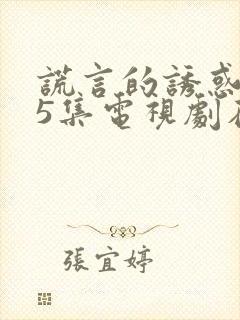 謊言的誘惑
5集電視劇
張宜婷